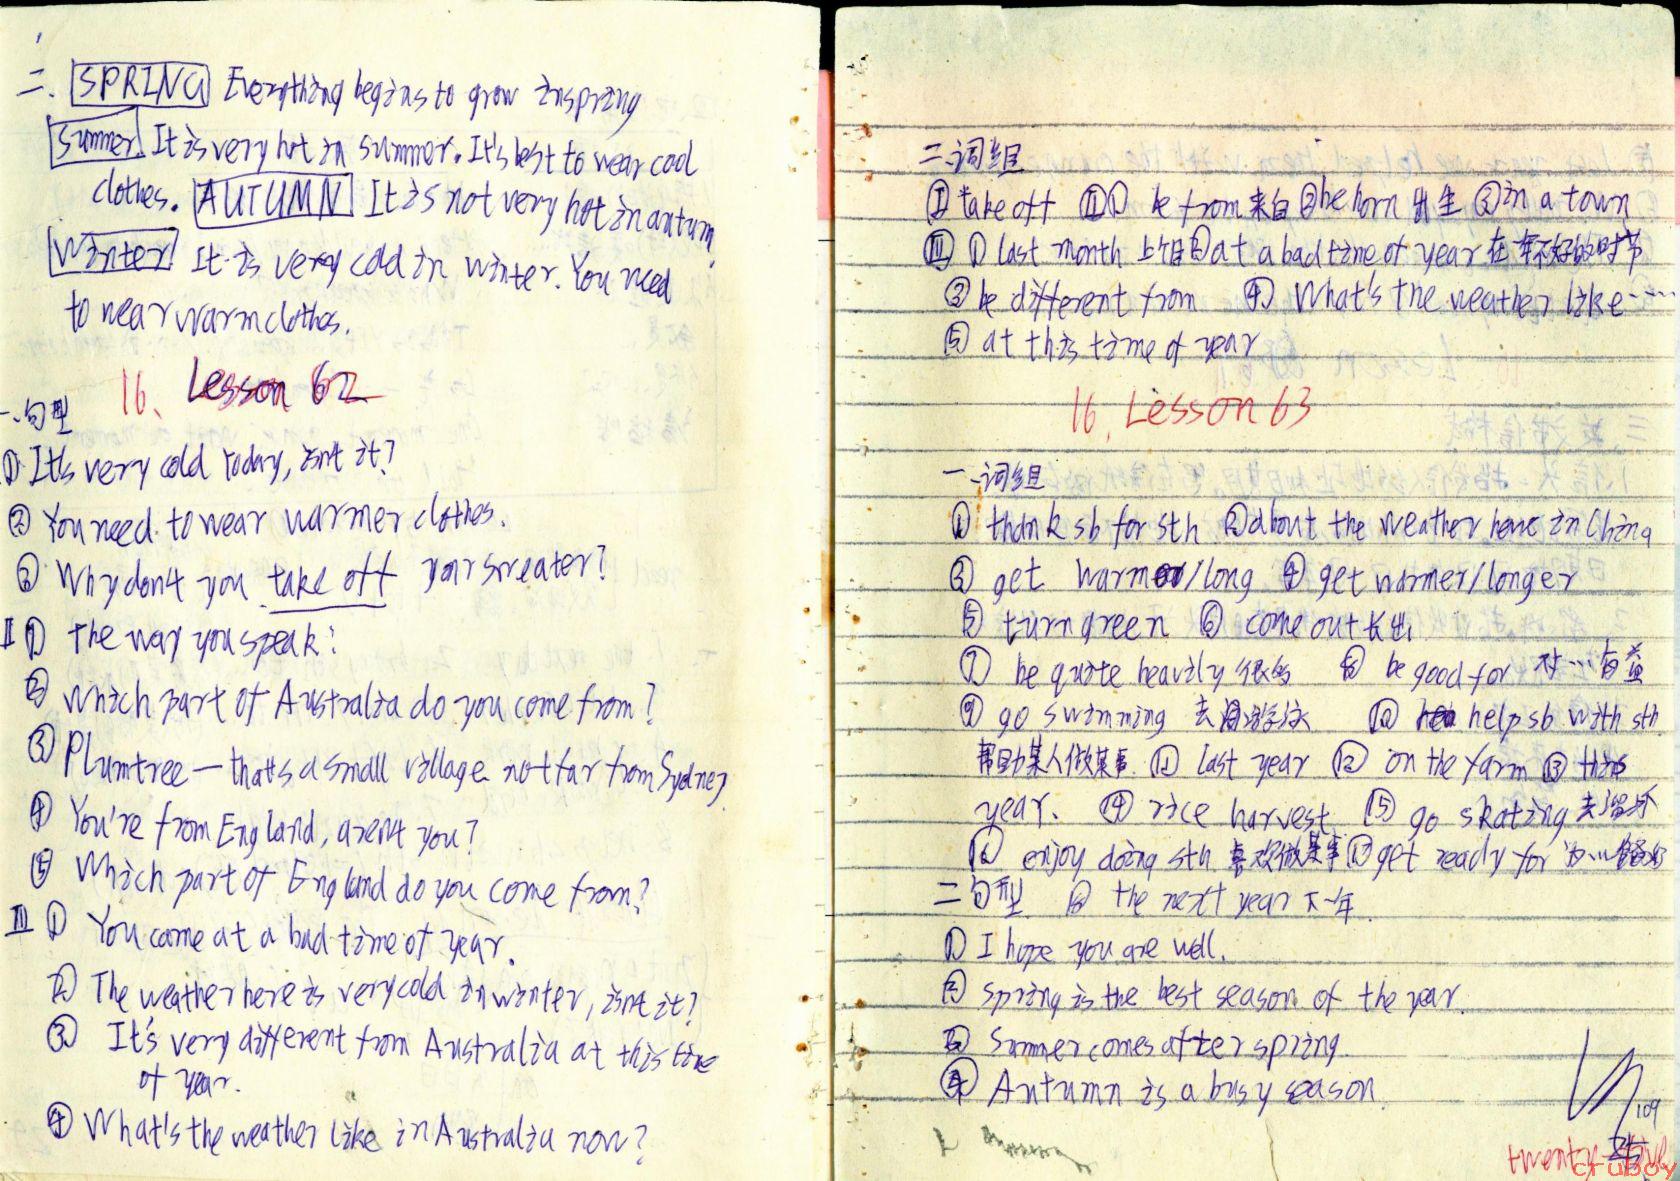 二. SPRING Everything begins to grow in spring
Summer. It is very hot in summer. It's best to wear cool
clothes. AUTUMN It is not very hot in autum.
Winter It is very cold in winter. You need
to wear warm clothes.
16. Lesson 62
一.句型
① It's very cold today, isn't it?
② You need to wear warmer clothes.
③ Why don't you take off your sweater?
Ⅱ ① The way you speak!
② Which part of Australia do you come from?
③ Plumtree — that's a small village not far from Sydney.
④ You're from England, aren't you?
⑤ Which part of England do you come from?
Ⅲ ① You came at a bad time of year.
② The weather here is very cold in winter, isn't it?
③ It's very different from Australia at this time
of year.
④ What's the weather like in Australia now?
二.词组
Ⅰ take off Ⅱ ① be from 来自 ② be born 出生 ③ in a town
Ⅲ ① last month 上个月 ② at a bad time of year 在一年不好的时节
③ be different from ④ What's the weather like……
⑤ at this time of year
16. Lesson 63
一.词组
① thank sb for sth ② about the weather here in China
③ get warm/long ④ get warmer/longer
⑤ turn green ⑥ come out 长出
⑦ be quite heavily 很多 ⑧ be good for 对…有益
⑨ go swimming 去游泳 ⑩ help sb with sth
帮助某人做某事 ⑪ last year ⑫ on the farm ⑬ this
year. ⑭ rice harvest ⑮ go skating 去溜冰
⑯ enjoy doing sth 喜欢做某事 ⑰ get ready for 为…准备好
二句型 ⑱ the next year 下一年.
① I hope you are well.
② Spring is the best season of the year.
③ Summer comes after spring.
④ Autumn is a busy season.
109
twenty-five
cruboy